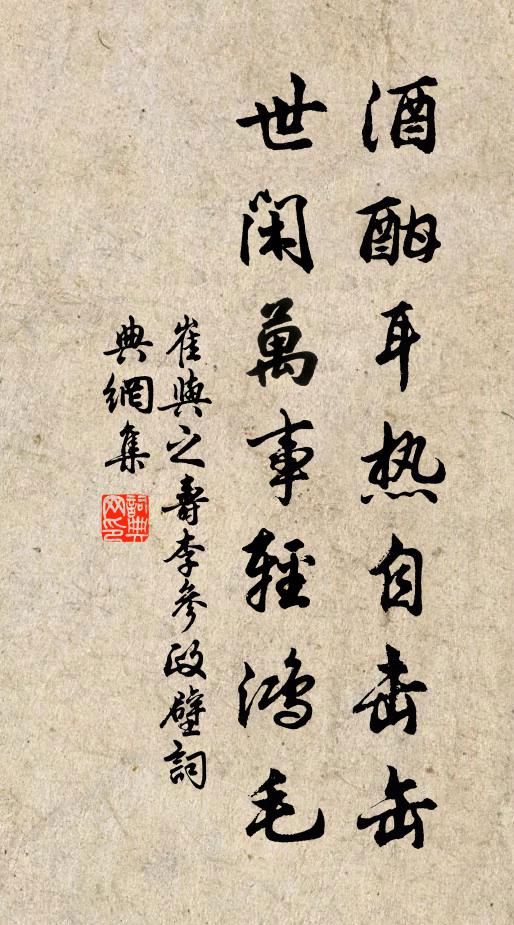 酒酣耳热自击缶
世闲萬事輕鴻毛
崔與之壽李參政壁詞
典網集
詞典網印